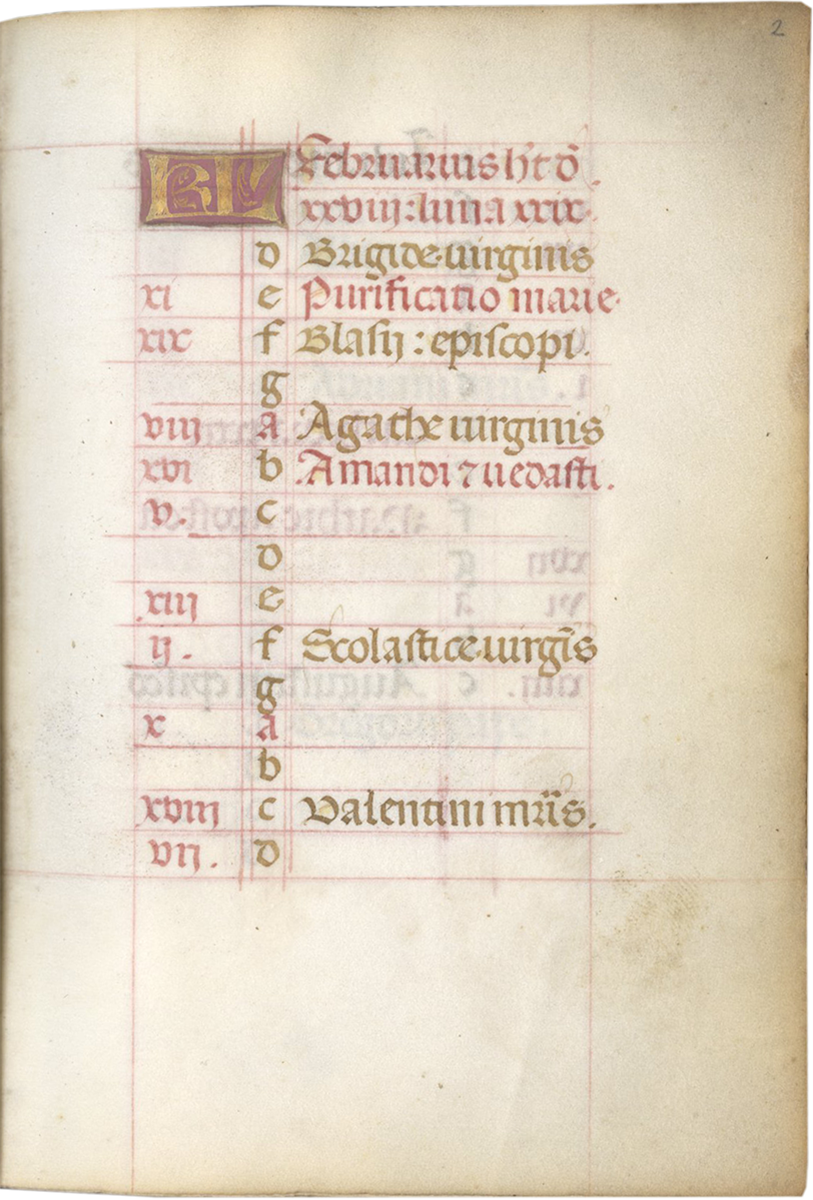 2
KL Februarius h't d̄.
xxviij: luna xxix.
d Brigide uirginis
xi e Purificatio marie.
xix f Blasij : episcopi.
g
viij a Agathe uirginis
xvi b .Amandi ⁊ uedasti.
v. c
d
xiij e
ij. f Scolastice uirgīs
g
x a
b
xviij c Valentini mr̄is.
vij. d